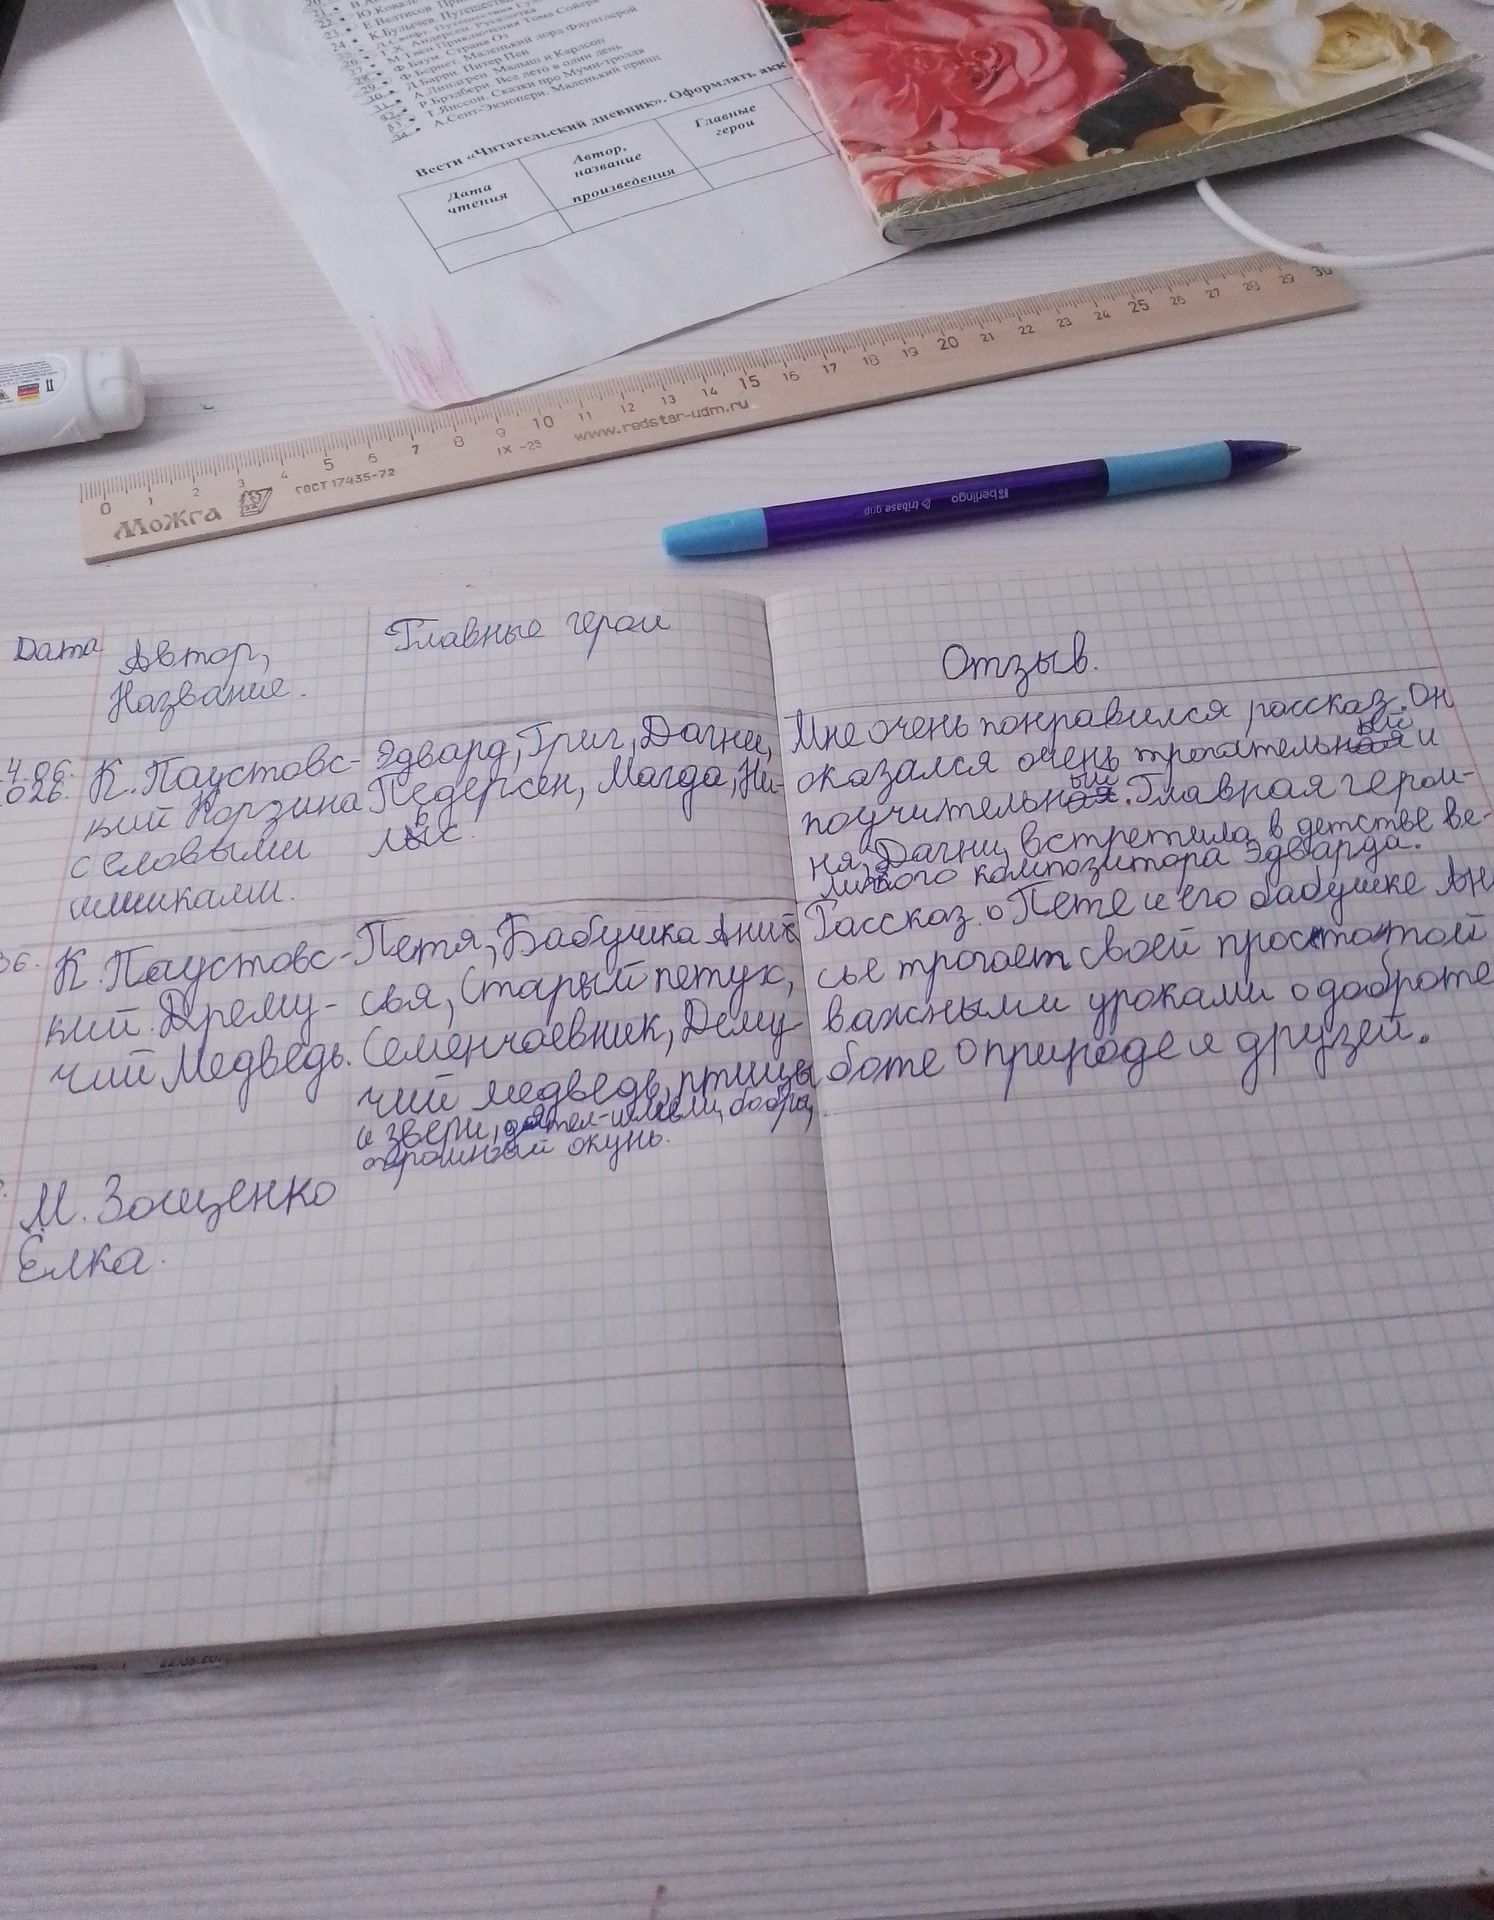 Ф.Баум. Страна Оз
Ф.Бернет. Маленький лорд Фаунтлерой
Д.Барри. Питер Пен
А.Линдгрен. Малыш и Карлсон
Р.Брэдбери. Все лето в один день
Т.Янссон. Сказки про Муми-тролля
А.Сент-Экзюпери. Маленький принц
Вести «Читательский дневник». Оформлять акк
Дата чтения
Автор, название произведения
Главные герои
0 1 2 3 4 5 6 7 8 9 10 11 12 13 14 15 16 17 18 19 20 21 22 23 24 25 26 27 28 29 30
Можга
ГОСТ 17435-72
IX -25
www.redstar-udm.ru
berlingo
tribase grip
Дата
Автор,
Название.
Главные герои
Отзыв.
4.06.
026.
К. Паустовс-
кий Корзина
с еловыми
шишками.
Эдвард, Григ, Дагни,
Педерсен, Магда, Ни-
льс.
Мне очень понравился рассказ. Он
оказался очень трогательный и
поучительный. Главная герои-
ня, Дагни, встретила в детстве ве-
ликого композитора Эдварда.
36.
К. Паустовс-
кий. Дрему-
чий Медведь.
Петя, Бабушка Анис
сья, Старый петух,
Семенчаевник, Дему
чий медведь, птицы
и звери,
огромный окунь.
Рассказ о Пете и его бабушке Ан
сье трогает своей простотой
важными уроками о доброте
боте о природе и друзей.
М. Зощенко
Ёлка.